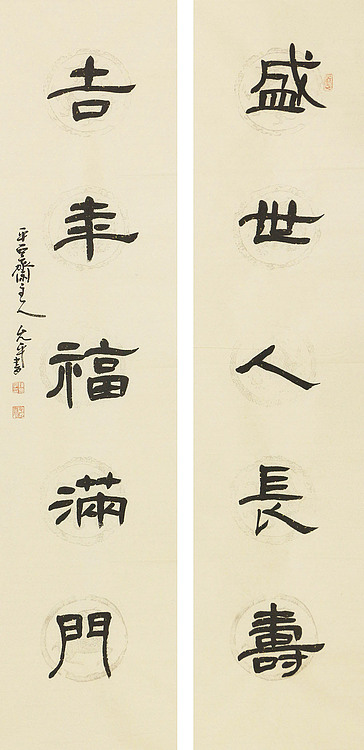 盛世人長壽
吉年福滿門
平玄齋主人 允平書